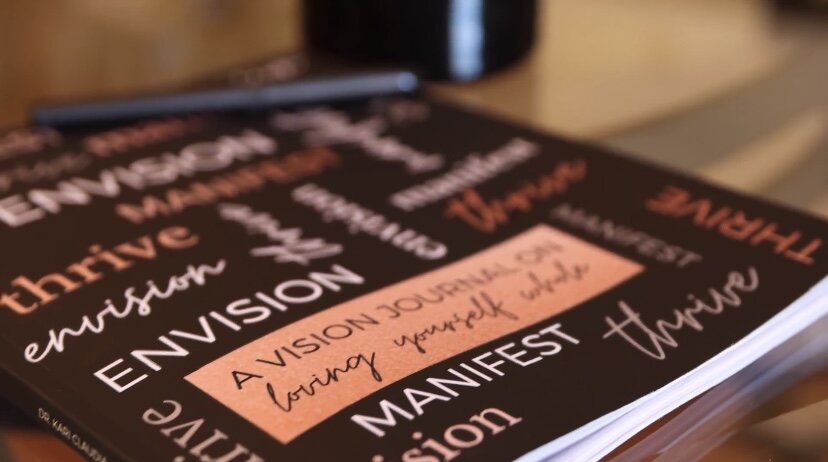 ENVISION
MANIFEST
manifest
thrive
THRIVE
thrive
envision
thrive
envision
MANIFEST
envision
ENVISION
A VISION JOURNAL ON
loving yourself whole
thrive
MANIFEST
DR. KARI CLAUDIA